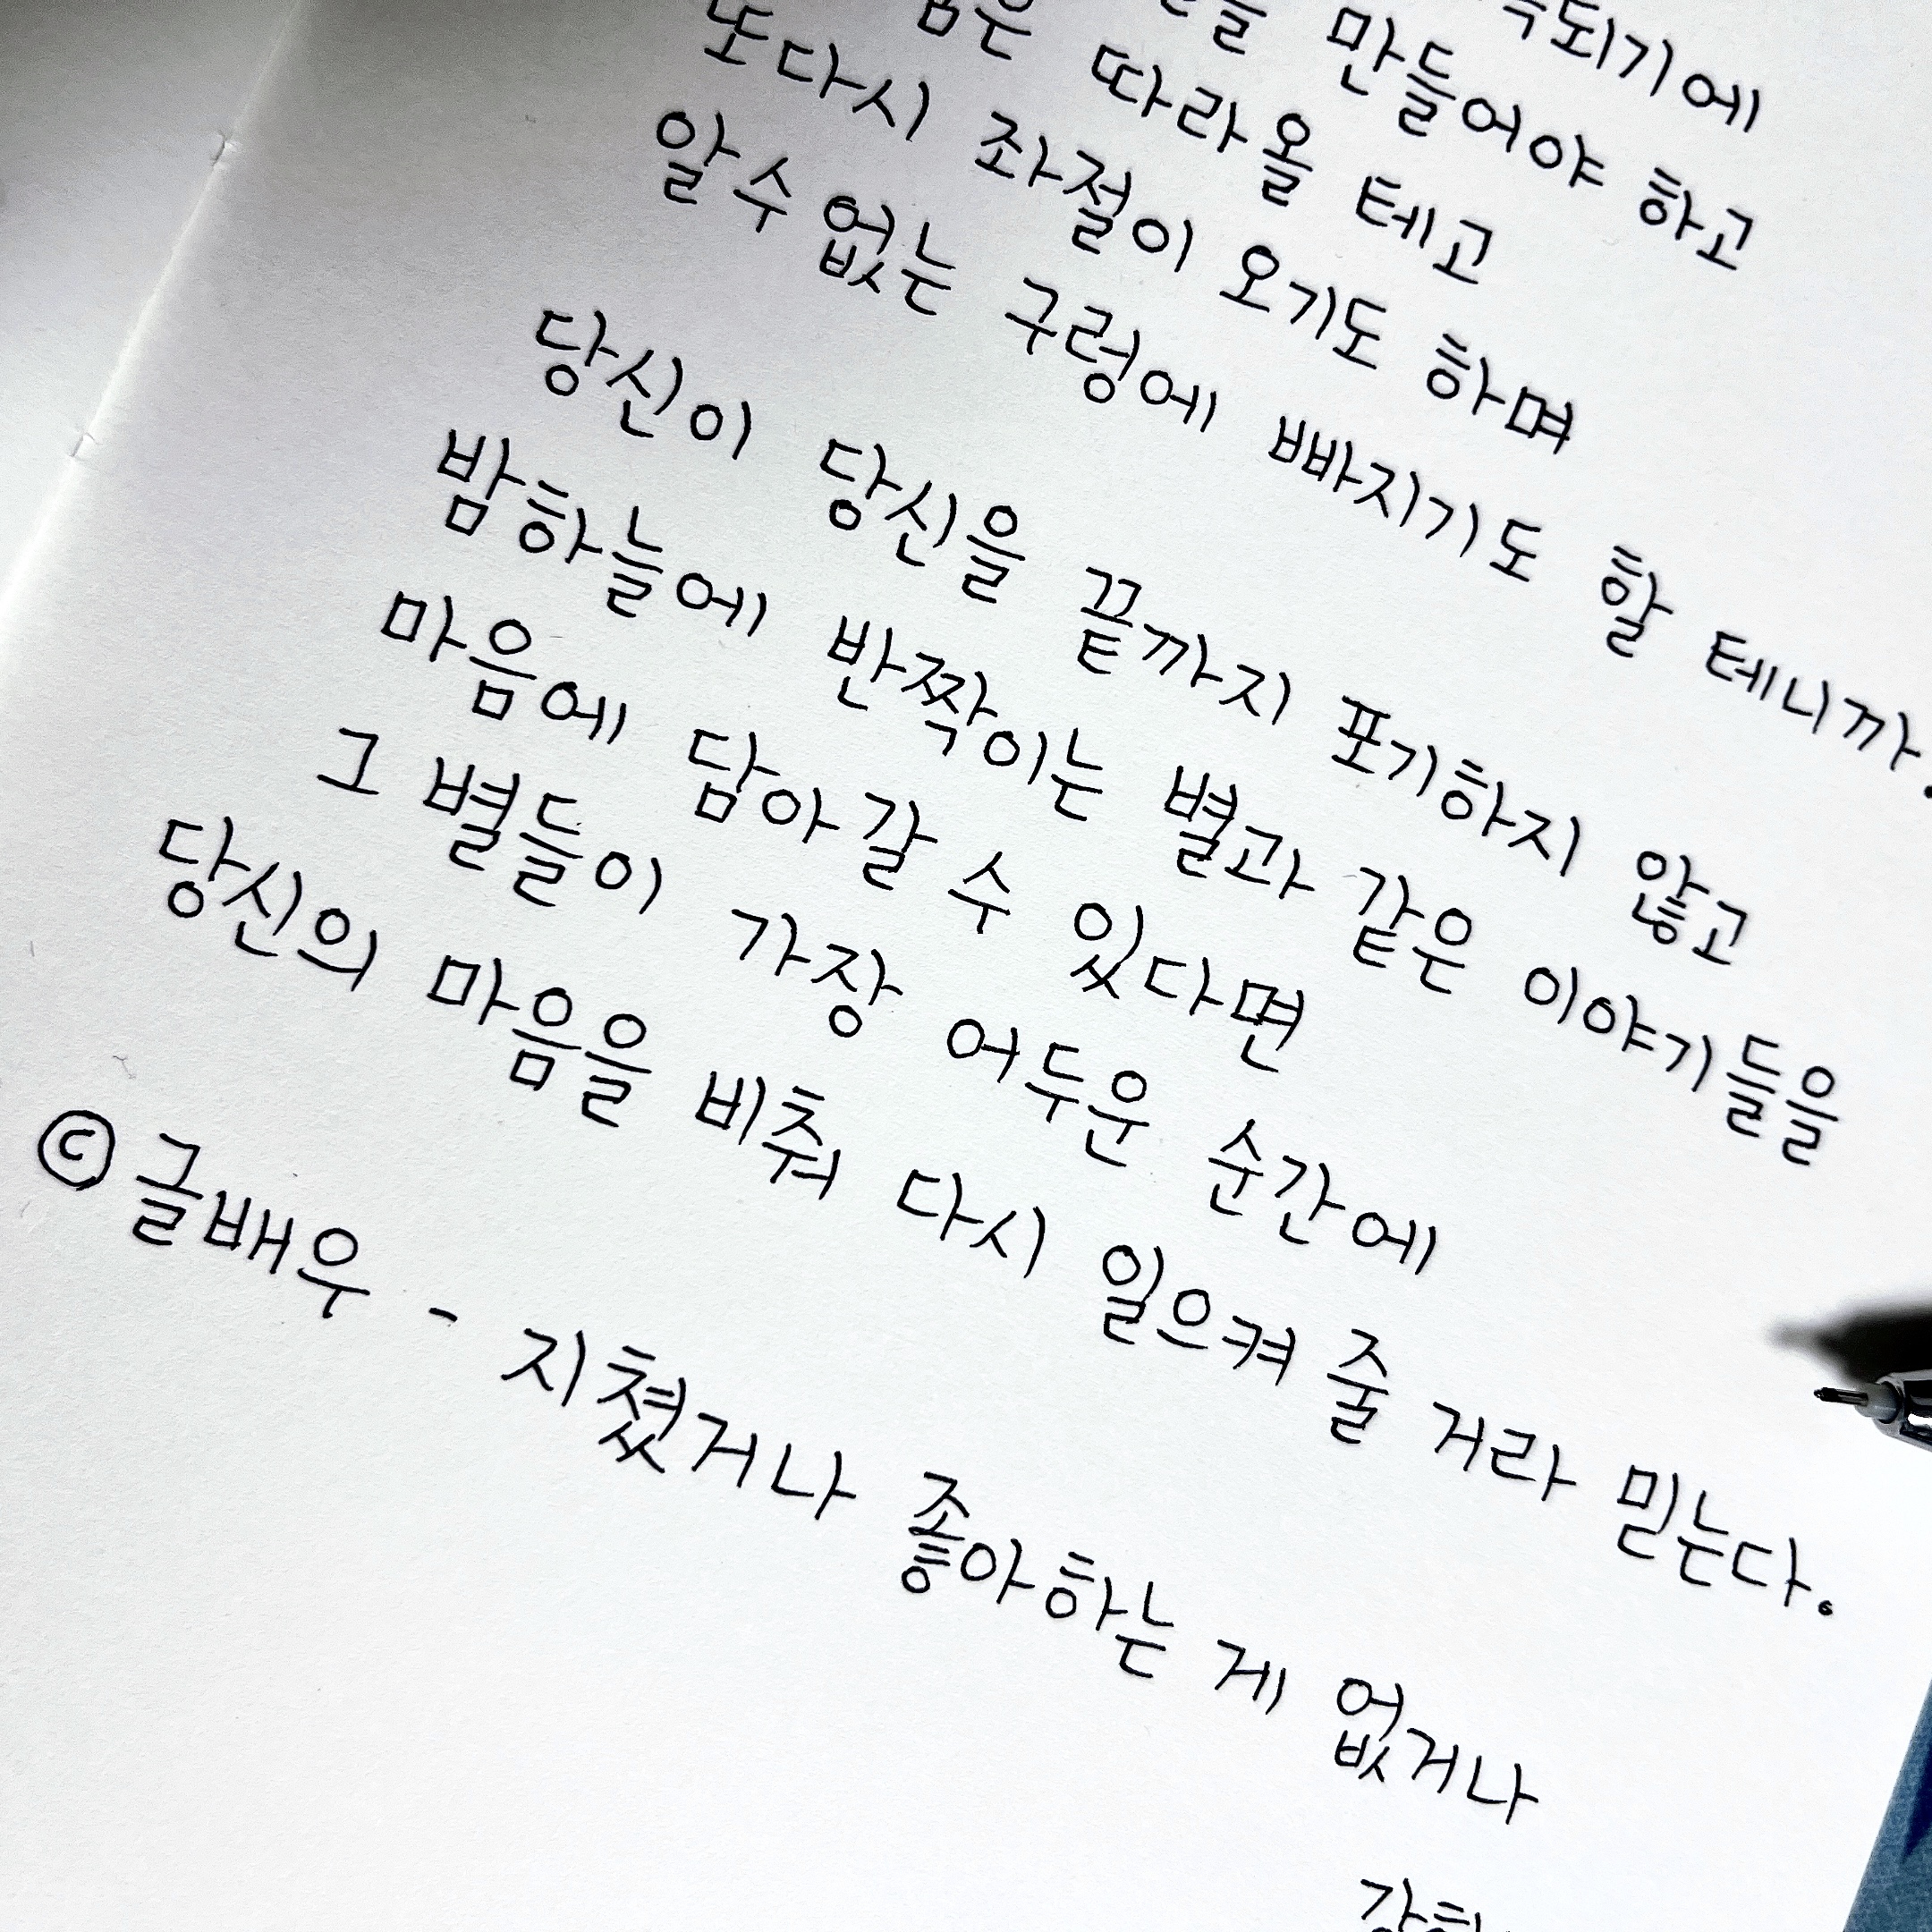 만들어야 하고
따라올 테고
또다시 좌절이 오기도 하며
알수없는 구렁에 빠지기도 할 테니까.
당신이 당신을 끝까지 포기하지 않고
밤하늘에 반짝이는 별과 같은 이야기들을
마음에 담아갈 수 있다면
그 별들이 가장 어두운 순간에
당신의 마음을 비춰 다시 일으켜 줄 거라 믿는다.
© 글배우 - 지쳤거나 좋아하는 게 없거나